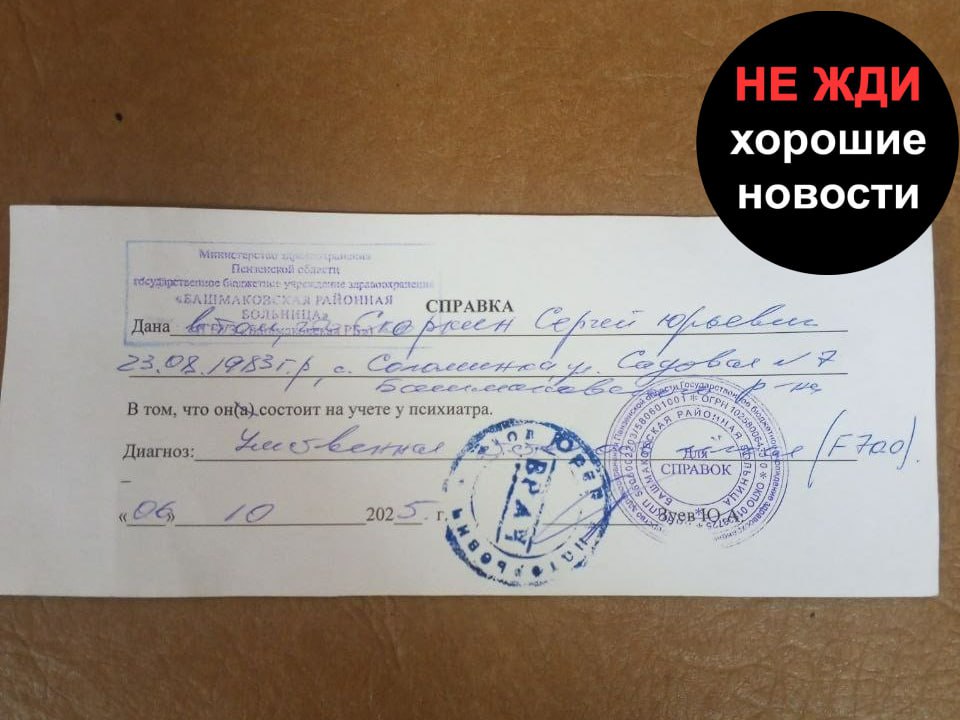 НЕ ЖДИ
хорошие
новости
Министерство здравоохранения
Пензенской области
государственное бюджетное учреждение здравоохранения
«БАШМАКОВСКАЯ РАЙОННАЯ
БОЛЬНИЦА»
СПРАВКА
Дана в том, что Скоркин Сергей Юрьевич
23.08.1983 г.р., с. Соломинка ул. Садовая № 7
Башмаковского р-на
В том, что он(а) состоит на учете у психиатра.
Диагноз: Умственная (F700).
«06» 10 2025 г.
Зуев Ю.А.
ЗУЕВ ЮРИЙ АНАТОЛЬЕВИЧ
ВРАЧ
БАШМАКОВСКАЯ РАЙОННАЯ БОЛЬНИЦА
Для
СПРАВОК